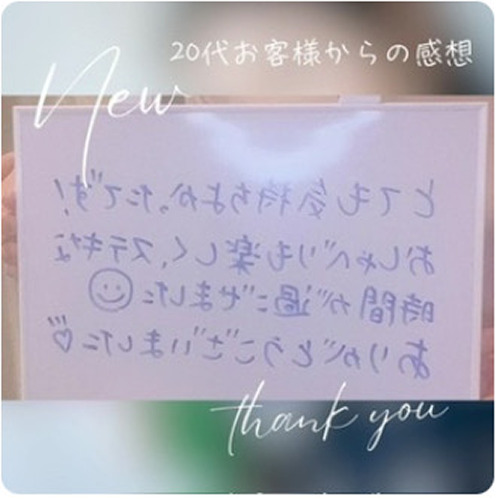 20代お客様からの感想
New
とても気持ちよかったです!
おしゃべりも楽しく、ステキな
時間が過ごせました☺
ありがとうございました♡
thank you